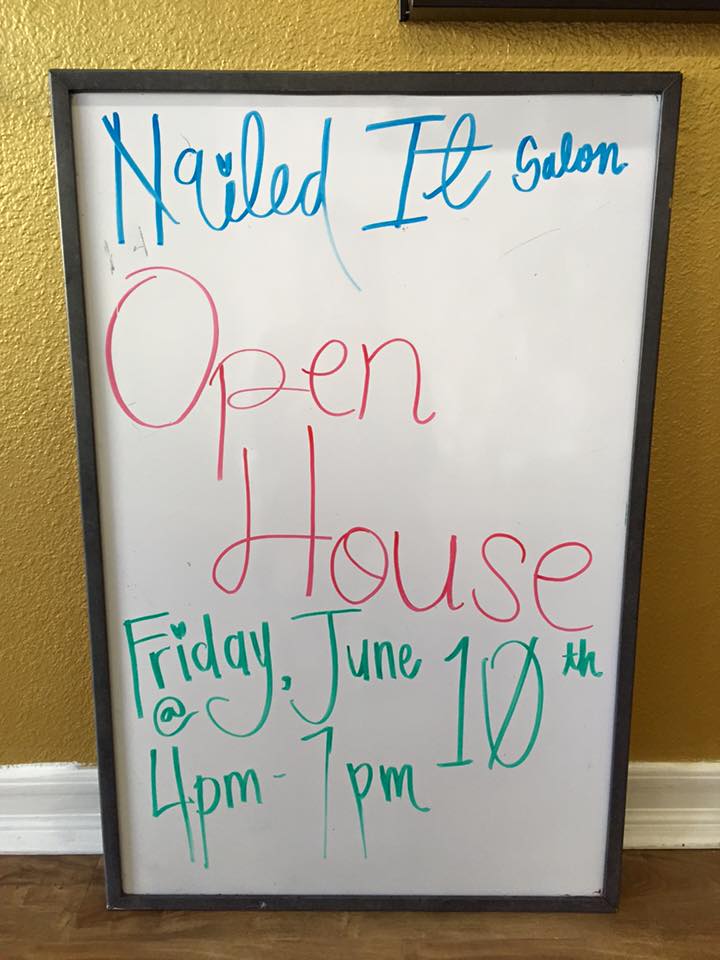 Nailed It Salon
Open
House
Friday, June 10th
@
4pm-7pm